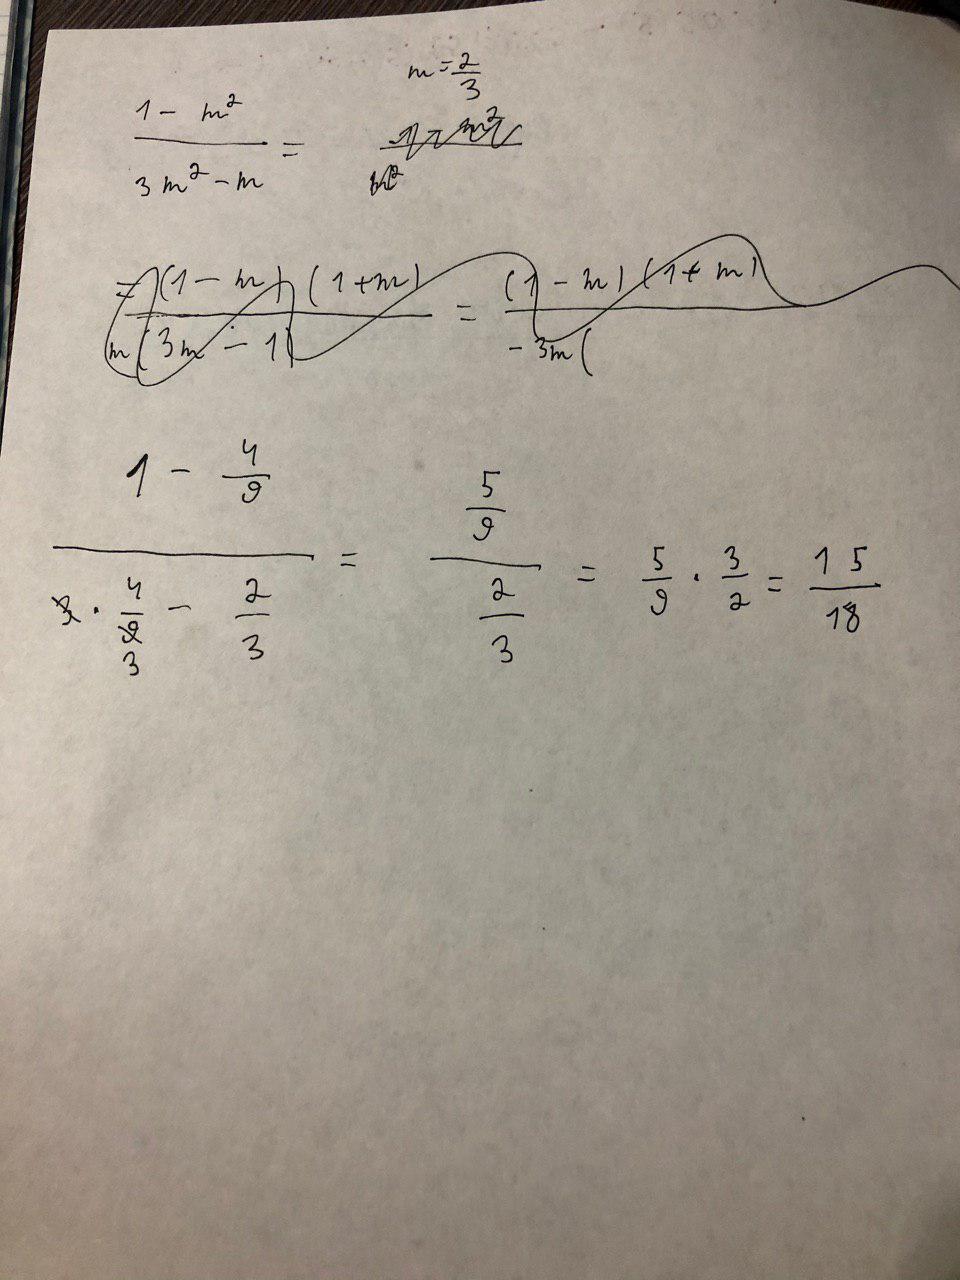 m = 2/3
(1 - m²)/(3m² - m) =
= (1 - m)(1 + m)/m(3m - 1) = (1 - m)(1 + m)/-3m(
(1 - 4/9)/(3 · 4/9 3 - 2/3) = (5/9)/(2/3) = 5/9 · 3/2 = 15/18